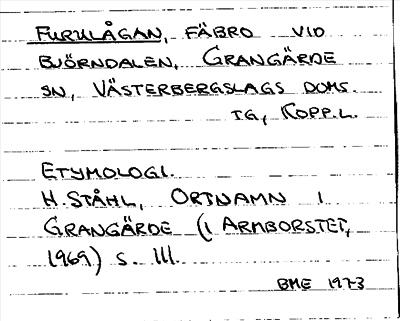 FURULÅGAN, FÄBRO VID
BJÖRNDALEN, GRANGÄRDE
SN, VÄSTERBERGSLAGS DOMS.
TG, KOPP.L.
ETYMOLOGI.
H. STÅHL, ORTNAMN I
GRANGÄRDE (I ARMBORSTET,
1969) S. 111.
BME 1973